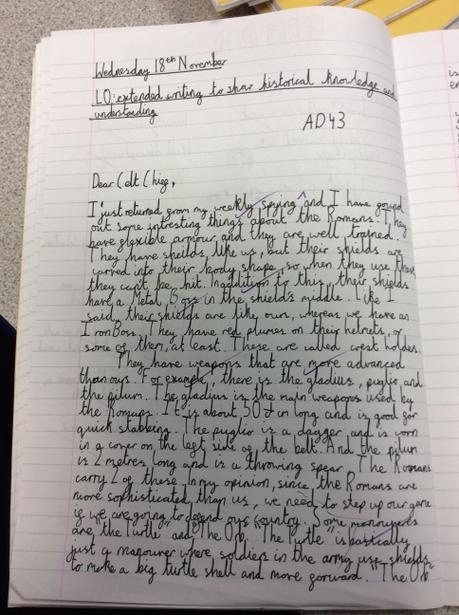 Wednesday 18th November
LO: extended writing to show historical knowledge and
understanding
AD43
Dear Celt Chief,
I just returned from my weekly spying ^ and I have found
out some intresting things about the Romans. They
have flexible armour and they are well trained.
They have sheilds, like us, but their shields are
curved into their body shape, so when they use them
they can't be hit. In addition to this, their shields
have a Metal Boss in the shield's middle. Like I
said, their shields are like ours, whereas we have an
Iron Boss. They have red plumes on their helmets, or
some of them, at least. These are called crest holders.
They have weapons that are more advanced
than ours. For example, there is the gladius, puglio, and
the pilum. The gladius is the main weapons used by
the Romans. It is about 50 cm long and is good for
quick stabbing. The puglio is a dagger and is worn
in a cover on the left side of the belt. And the pilum
is 2 metres long and is a throwing spear. The Romans
carry 2 of these. In my opinion, since the Romans are
more sophisticated than us, we need to step up our game
if we are going to defend our country. Some manouvers
are the "Turtle" and The Orb. The "Turtle" is bastically
just a manouver where soldiers in the army use shields
to make a big turtle shell and move forward. "The Orb"